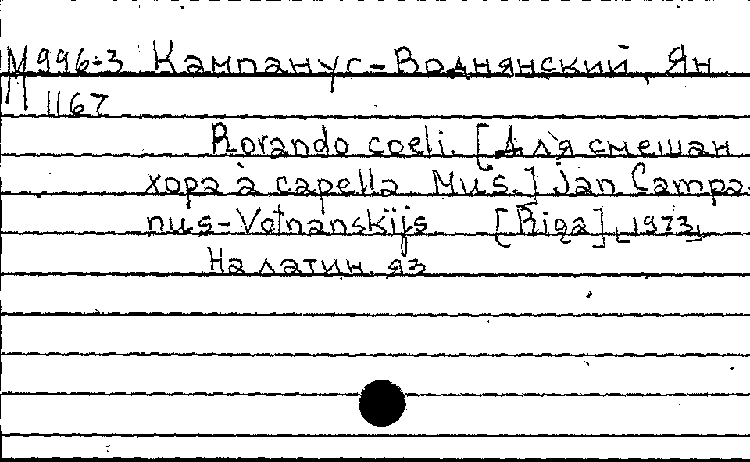 М996-3 Кампанус-Воднянский, Ян
1167
Rorando coeli. [Для смешан
хора а capella. Mūs.] Jan Campa-
nus-Votnanskijs. [Riga] [1973]
На латин. яз